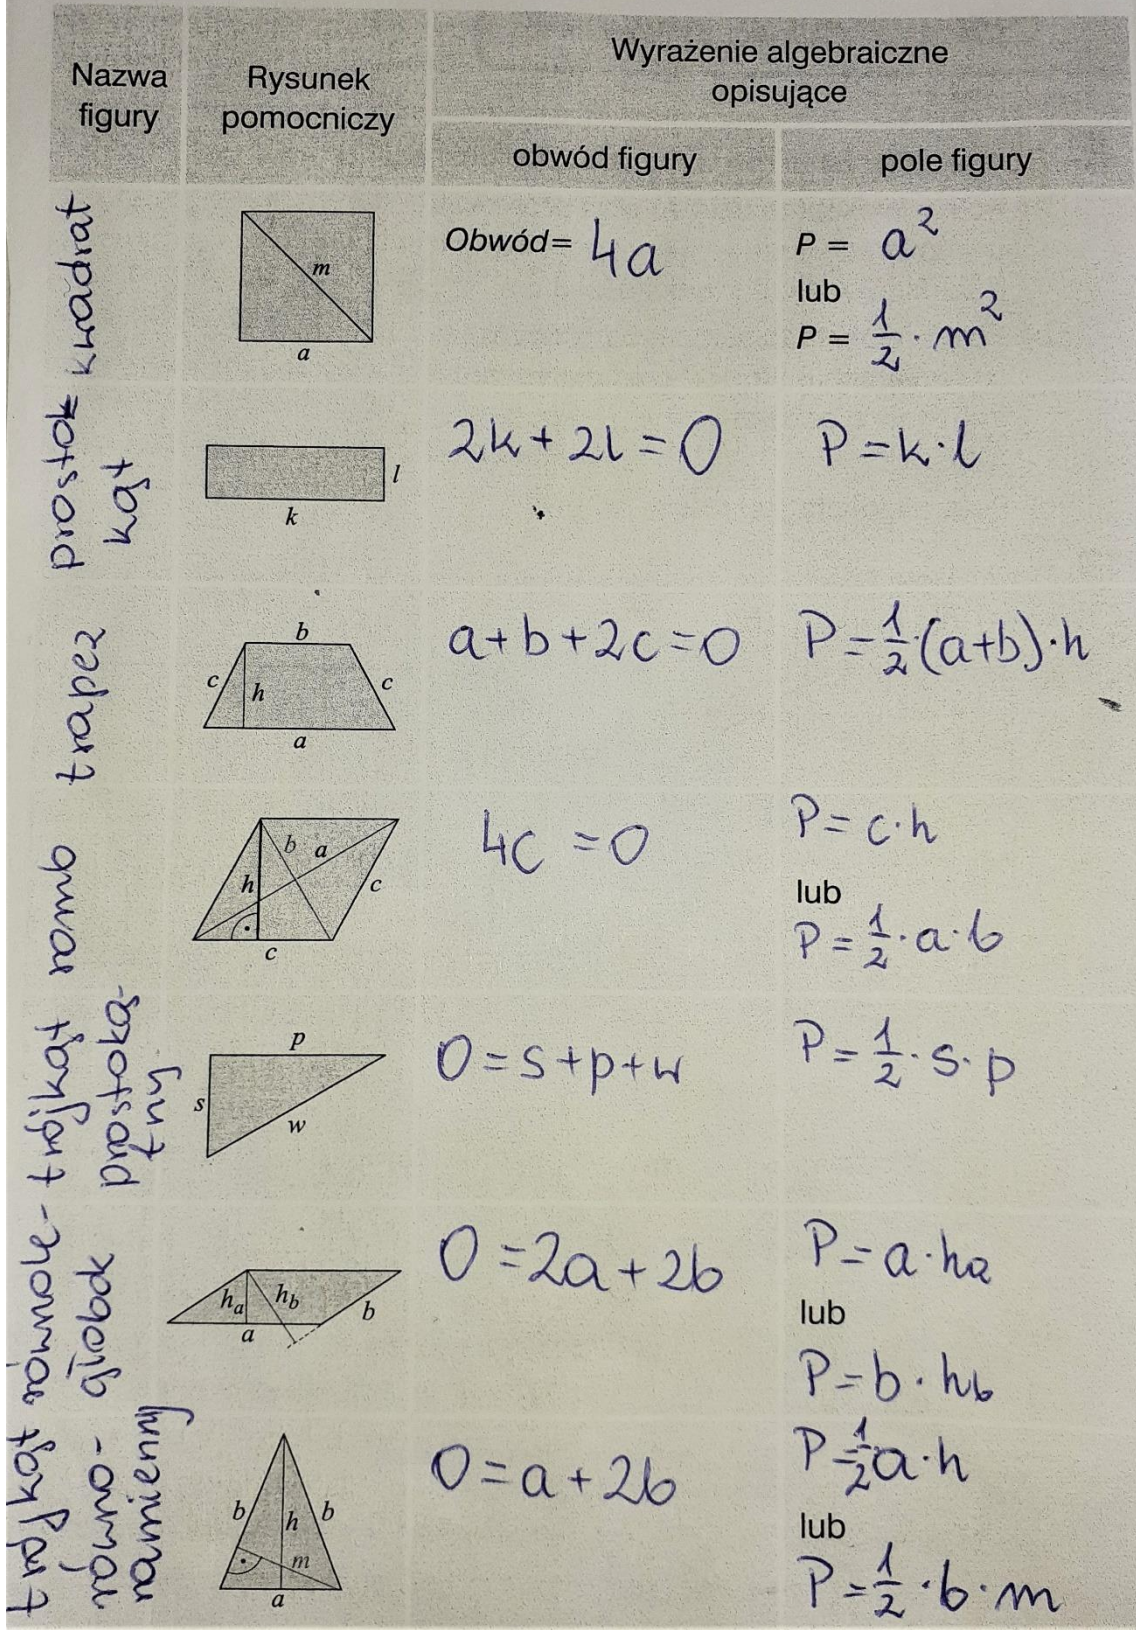 Nazwa figury
Rysunek pomocniczy
Wyrażenie algebraiczne opisujące
obwód figury
pole figury
kwadrat
m
a
Obwód= 4a
P = a²
lub
P = 1/2 · m²
prostok
kąt
l
k
2k + 2l = O
P = k·l
trapez
b
c
h
c
a
a+b+2c=O
P=1/2·(a+b)·h
romb
b
a
h
c
c
4c = O
P= c·h
lub
P=1/2·a·b
trójkąt
prostoką-
tny
p
s
w
O=s+p+w
P=1/2·s·p
równole-
głobok
ha
hb
b
a
O=2a+2b
P=a·ha
lub
P=b·hb
trójkąt
równo-
ramienny
b
h
b
m
a
O=a+2b
P=1/2a·h
lub
P=1/2·b·m